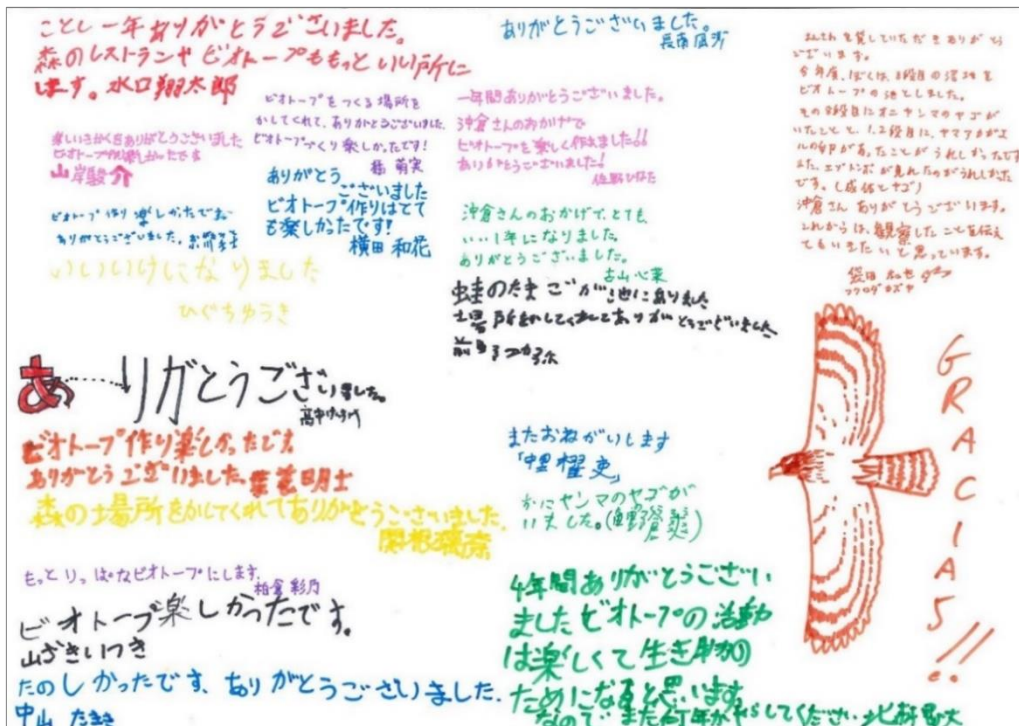 ことし一年ありがとうございました。
森のレストランやビオトープももっといい所に
します。水口翔太郎
ありがとうございました。
ビオトープをつくる場所を
かしてくれて、ありがとうございました。
ビオトープづくり楽しかったです!
楽しいきかくをありがとうございました
ビオトープ作り楽しかったです
山岸駿介
ありがとう
ございました
ビオトープ作りはとて
も楽しかったです!
横田 和花
ビオトープ作り楽しかったです。
ありがとうございました。
いいいけになりました
ひぐちゆうき
一年間ありがとうございました。
沖倉さんのおかげで
ビオトープを楽しく作れました!!
ありがとうございました!
佐野ひなた
沖倉さんのおかげで、とても
いい1年になりました。
ありがとうございました。
古山心菜
蛙のたまごが池にありました
場所をかしてくれてありがとうございました
を貸していただきありがとう
ございます。
今年度、ぼくは、3段目の湿地を
ビオトープの池としました。
その3段目にオニヤンマのヤゴが
いたことと、1、2段目に、ヤマアカガエ
ルの卵があったことがうれしかったです
また、エゾトンボが見れたのがうれしかった
です。(成体とヤゴ)
沖倉さんありがとうございます。
これからは、観察したことを伝え
てもいきたいと思っています。
袋田
フクロダカズヤ
ありがとうございました。
ビオトープ作り楽しかったです。
ありがとうございました。
森の場所をかしてくれてありがとうございました。
関根璃奈
もっとりっぱなビオトープにします。
柏倉彩乃
ビオトープ楽しかったです。
山ざきいつき
たのしかったです、ありがとうございました。
中山 たまき
またおねがいします
おにヤンマのヤゴが
いました。
4年間ありがとうござい
ましたビオトープの活動
は楽しくて生き物の
ためになると思います。
なので、また何年かやらしてください
GRACIAS!!